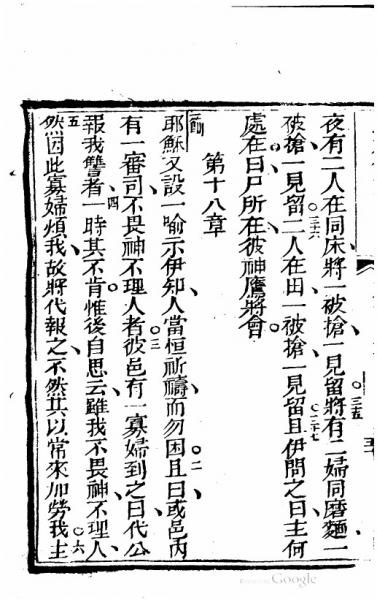 夜有二人在同床將一被搶一見留三五將有二婦同磨麵一
被搶一見留三六二人在田一被搶一見留三七且伊問之曰主何
處在曰尸所在彼神鷹將會
第十八章
一節耶穌又設一喻示伊知人當恒祈禱而勿困二且曰或邑內
有一審司不畏神不理人者三彼邑有一寡婦到之曰代公
報我讐者四一時其不肯惟後自思云雖我不畏神不理人
五然因此寡婦煩我故將代報之不然其以常來加勞我六主
Google